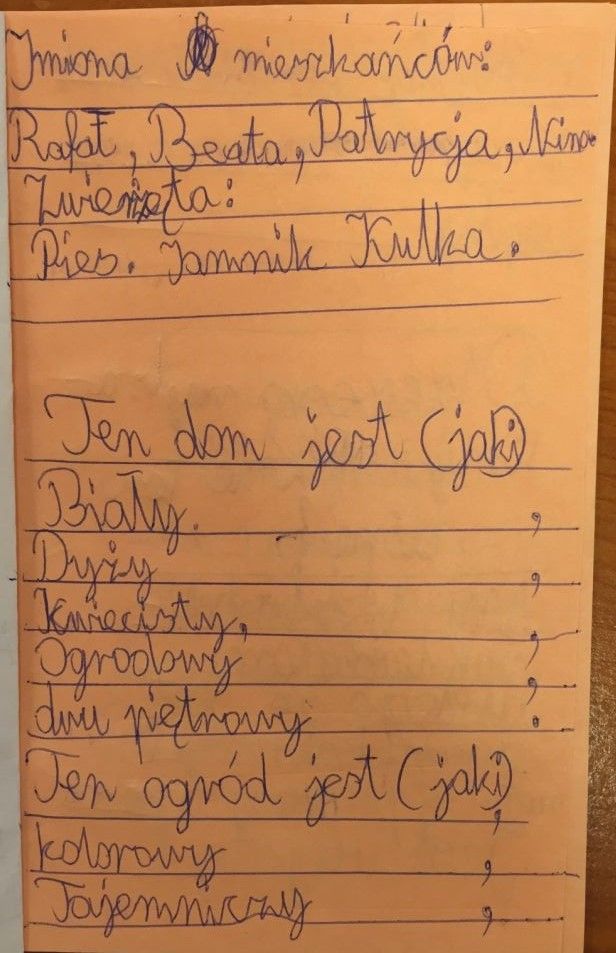 Imiona mieszkańców:
Rafał, Beata, Patrycja, Nina.
Zwierzęta:
Pies. Jamnik Kulka.
Ten dom jest (jaki)
Biały. ,
Dyży ,
Kwiecisty, ,
Ogrodowy ,
dwu piętrowy .
Ten ogród jest (jaki) ,
kolorowy ,
Tajemniczy ,